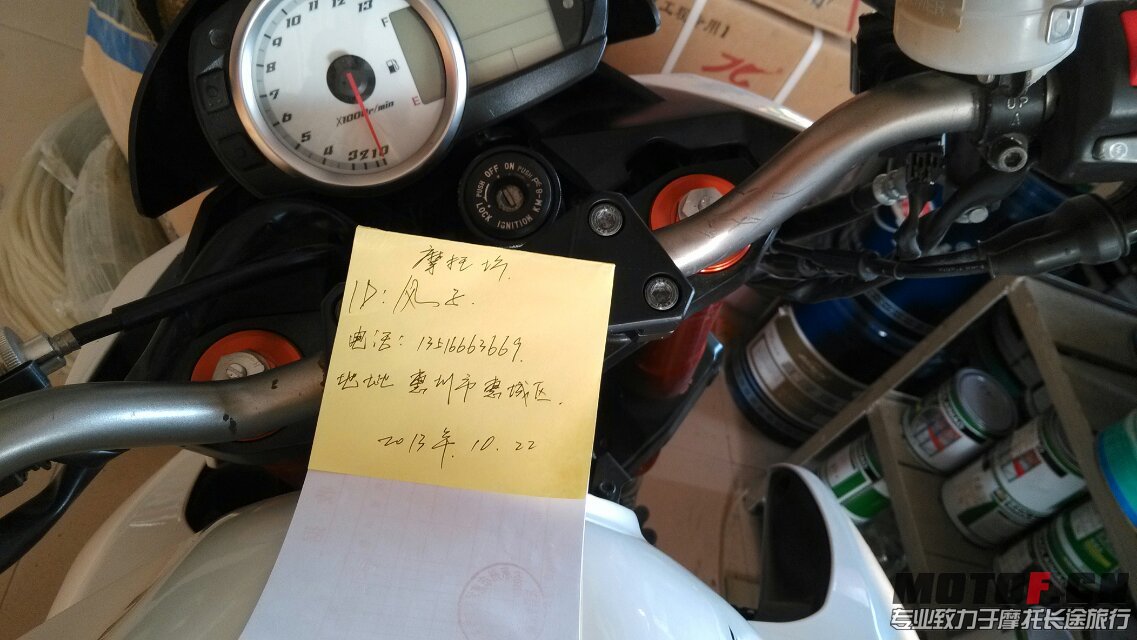 工
用
13 12 11 10 9 8 7 6 5 4 3 2 1 0
F
E
X1000r/min
LOCK OFF ON PUSH
PUSH
IGNITION
UP
摩托坊.
ID:风云.
电话:13516663669.
地址 惠州市惠城区.
2013年.10.22
MOTOF.CN
专业致力于摩托长途旅行